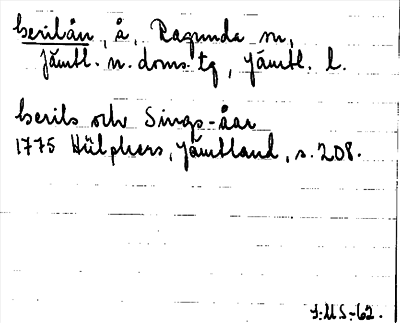 Cerilån, å, Ragunda sn,
Jämtl. n. doms. tg, Jämtl. l.
Cerils och Sings-åar
1775 Hülphers, Jämtland, s. 208.
J.M.S.-62.